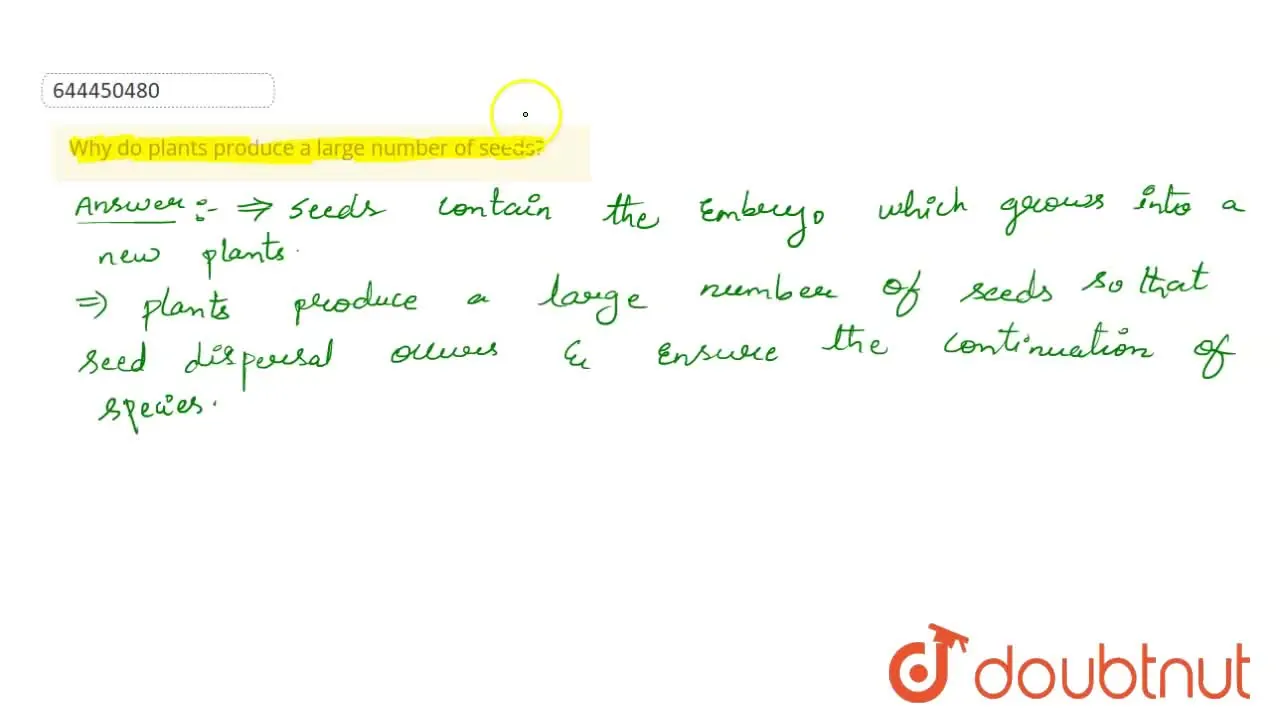 644450480
Why do plants produce a large number of seeds?
Answer :- ⇒ seeds contain the Embryo which grows into a
new plants.
⇒ plants produce a large number of seeds so that
seed dispersal occurs & ensure the continuation of
species.
doubtnut